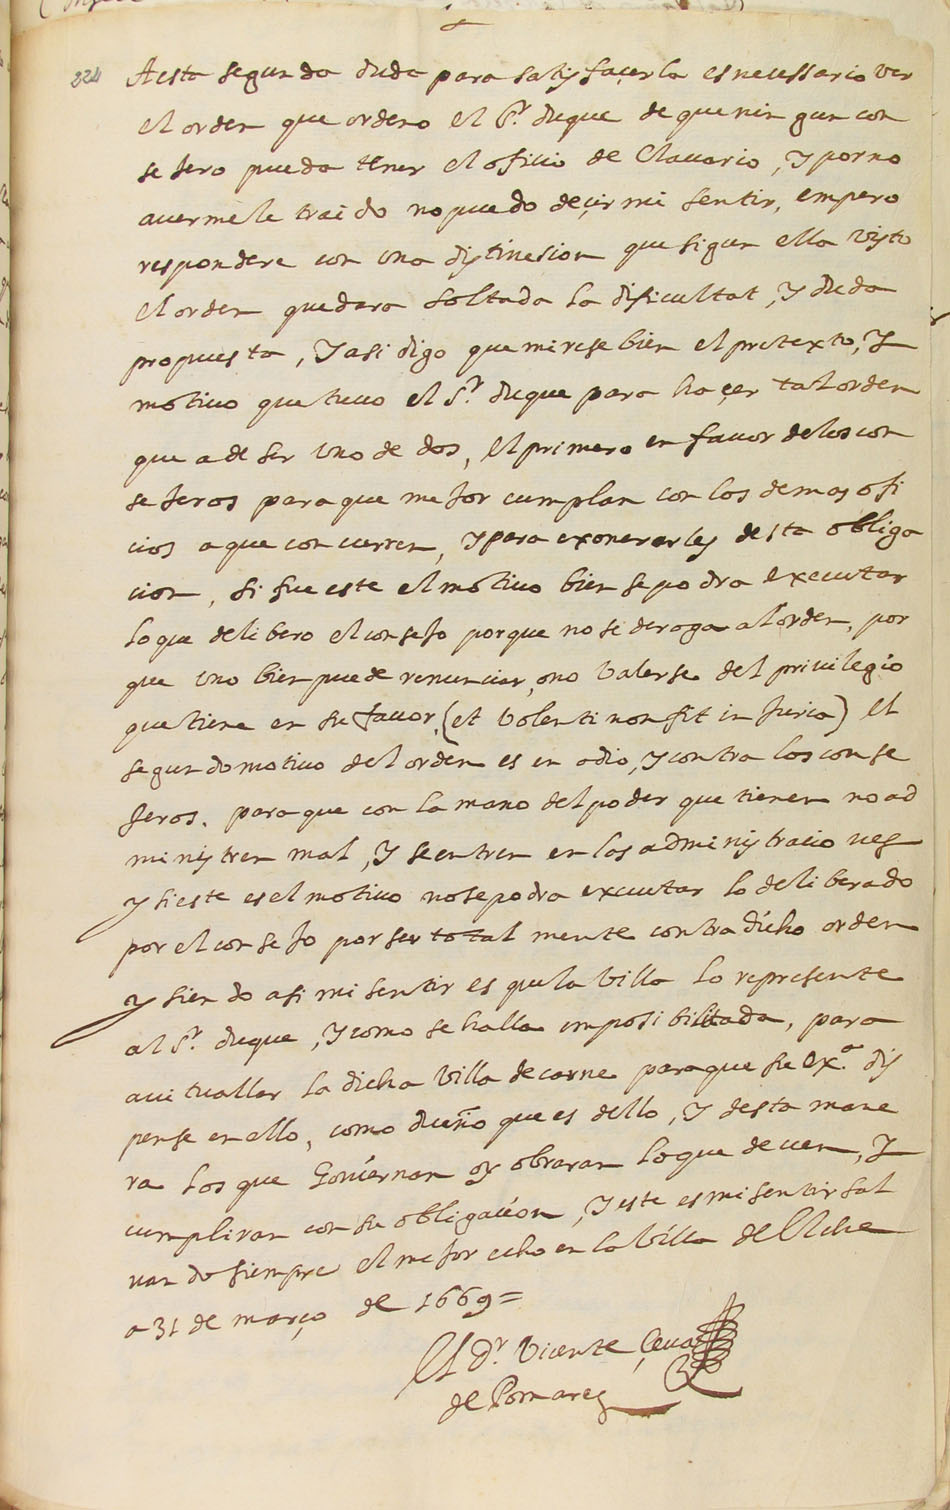 224
A esta segunda duda para satisfaçerla es necessario ver
el orden que ordeno el Sr. duque de que ningun con
sejero pueda tener el oficio de Clavario, Y por no
avermele traido no puedo deçir mi sentir, empero
respondere con una distinesion que sigun ella visto
el orden quedara soltada la dificultat, Y duda
propuesta, Y asi digo que mirese bien el pretexto, Y
motiuo que tuuo el Sr. duque para haçer tal orden
que a de ser uno de dos, el primero en fauor de los con
sejeros para que mejor cumplan con los demas ofi
cios a que concurren, y para exonerarles desta obliga
cion, si fue este el motiuo bien se podra executar
lo que delibero el consejo porque no se deroga al orden, por
que uno bien puede renunciar, o no valerse del privilegio
que tiene en su fauor, (et volenti non fit injuria) el
segundo motiuo del orden es en odio, y contra los conse
jeros, para que con la mano del poder que tienen no ad
ministren mal, Y se entren en las administracio nes
y si este es el motiuo no se podra executar lo deliberado
por el consejo por ser totalmente contra dicho orden
y siendo asi mi sentir es que la Villa lo represente
al Sr. duque, Y como se halla imposibilitada, para
avituallar la dicha Villa de carne para que su Exa. dis
pense en ello, como dueño que es dello, Y desta mane
ra los que Goviernan oy obraran lo que deuen, Y
cumpliran con su obligacion, Y este es mi sentir sal
uando siempre el mejor echo en la Villa de Elche
a 31 de março de 1669=
El Dr. Vicente Çeua
de Pomares